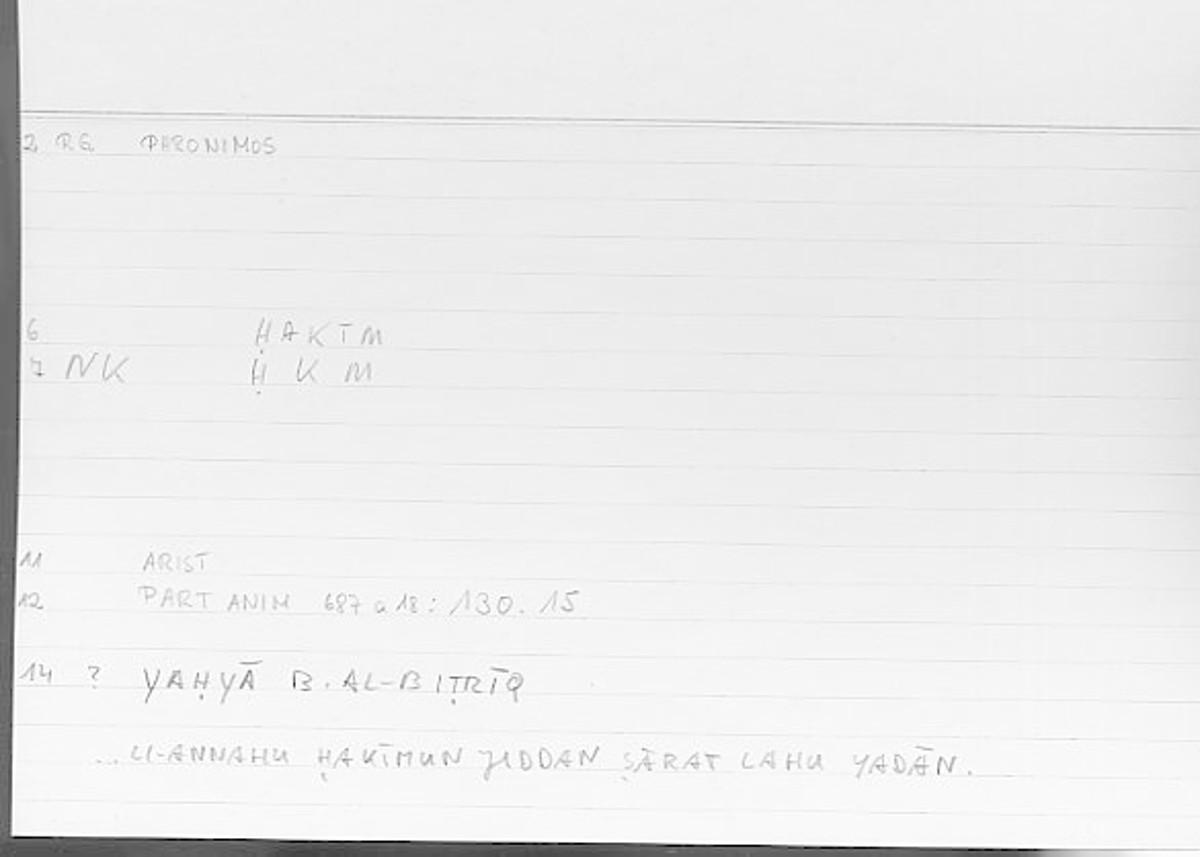 2 RG PHRONIMOS
6 ḤAKĪM
7 NK Ḥ K M
11 ARIST
12 PART ANIM 687 a 18 : 130.15
14 ? YAḤYĀ B. AL-BIṬRĪQ
... LI-ANNAHU ḤAKĪMUN JIDDAN ṢĀRAT LAHU YADĀN.